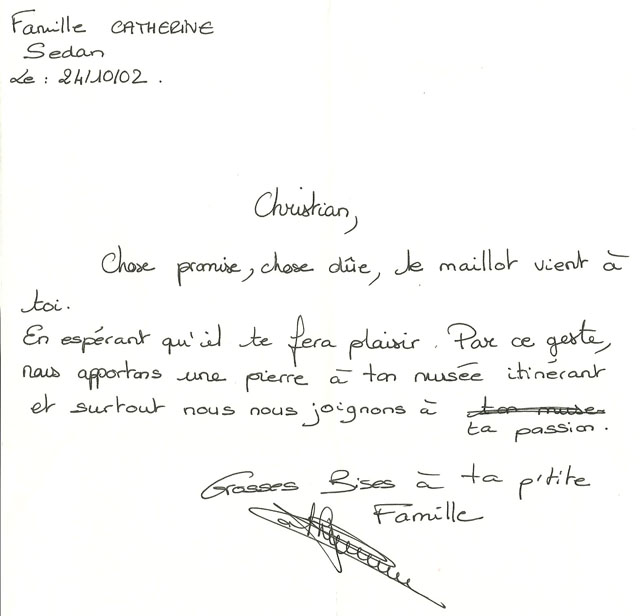 Famille CATHERINE
Sedan
Le : 24/10/02.
Christian,
Chose promise, chose dûe, le maillot vient à
toi.
En espérant qu'il te fera plaisir. Par ce geste,
nous apportons une pierre à ton musée itinérant
et surtout nous nous joignons à ton muse
ta passion.
Grosses Bises à ta p'tite
Famille